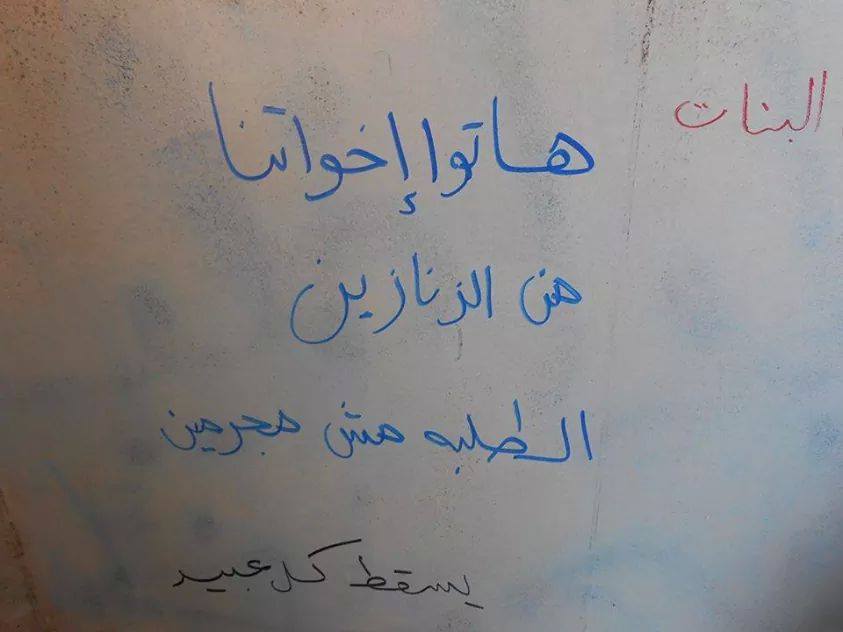 البنات
هاتوا إخواتنا
من الزنازين
الطلبه مش مجرمين
يسقط كل عبيد